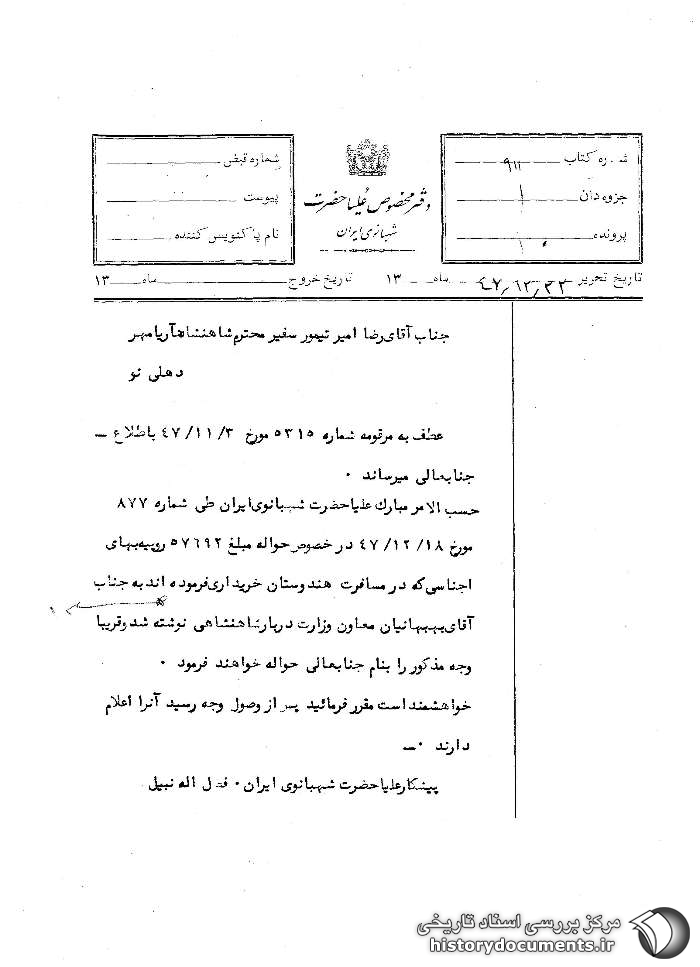 شماره کتاب ۹۱۱
جزوه دان ۱
پرونده ۱۰
دفتر مخصوص علیاحضرت
شهبانوی ایران
شماره قبض
پیوست
نام پاکنویس کننده
تاریخ تحریر ۴۷/۱۲/۲۲ ماه ۱۳ تاریخ خروج ماه ۱۳
جناب آقای رضا امیر تیمور سفیر محترم شاهنشاه آریامهر
دهلی نو
عطف به مرقومه شماره ۵۳۱۵ مورخ ۴۷/۱۱/۳ باطلاع –
جنابعالی میرساند ۰
حسب الامر مبارک علیاحضرت شهبانوی ایران طی شماره ۸۷۷
مورخ ۴۷/۱۲/۱۸ در خصوص حواله مبلغ ۵۷۶۹۲ روپیه بهای
اجناسی که در مسافرت هندوستان خریداری فرموده اند به جناب
آقای بهبهانیان معاون وزارت دربار شاهنشاهی نوشته شد و قریبا
وجه مذکور را بنام جنابعالی حواله خواهند فرمود ۰
خواهشمند است مقرر فرمائید پس از وصول وجه رسید آنرا اعلام
دارند ۰–
پیشکار علیاحضرت شهبانوی ایران ۰ فضل اله نبیل
مرکز بررسی اسناد تاریخی
historydocuments.ir